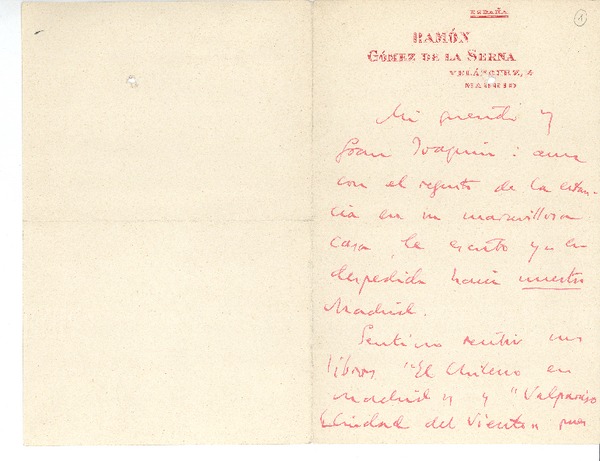 ESPAÑA
1
RAMÓN
GÓMEZ DE LA SERNA
VELÁZQUEZ, 4
MADRID
Mi querido y
gran Joaquin: aun
con el regusto de la estan-
cia en su maravillosa
casa, le escribo ya en
despedida hacia nuestro
Madrid.
Sentí no recibir sus
libros "El Chileno en
Madrid" y "Valparaiso
Ciudad del Viento" pues